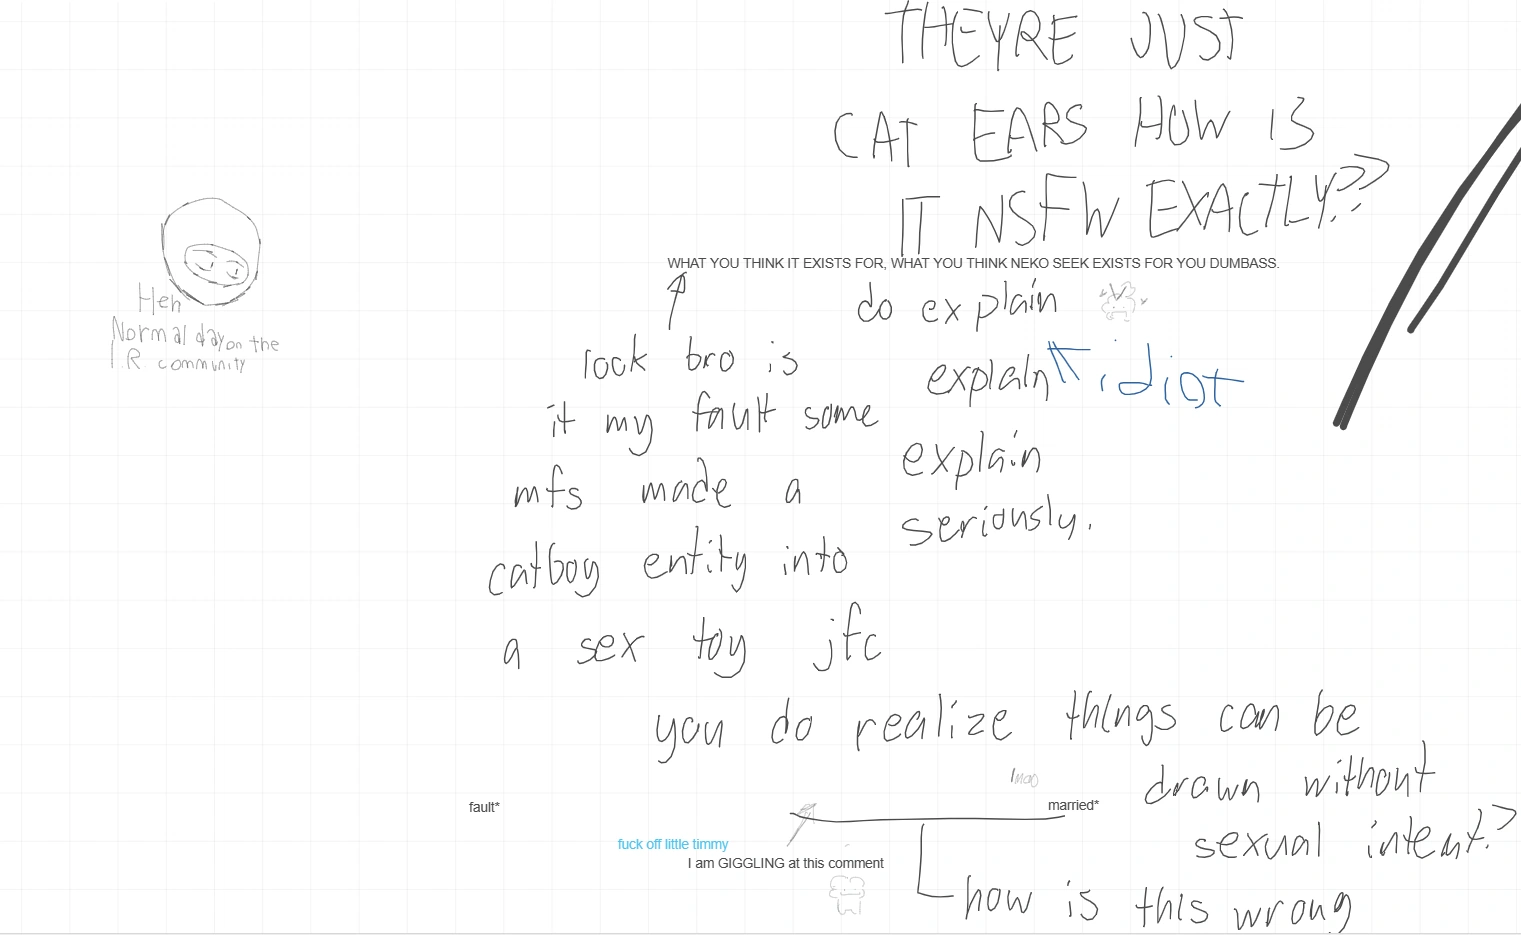 THEYRE JUST
CAT EARS HOW IS
IT NSFW EXACTLY??
WHAT YOU THINK IT EXISTS FOR, WHAT YOU THINK NEKO SEEK EXISTS FOR YOU DUMBASS.
Heh
Normal day on the
I.R. community
look bro is
it my fault some
mfs made a
catboy entity into
a sex toy jfc
do explain
explain
idiot
explain
seriously.
you do realize things can be
drawn without
sexual intent?
lmao
fault*
married*
fuck off little timmy
I am GIGGLING at this comment
how is this wrong